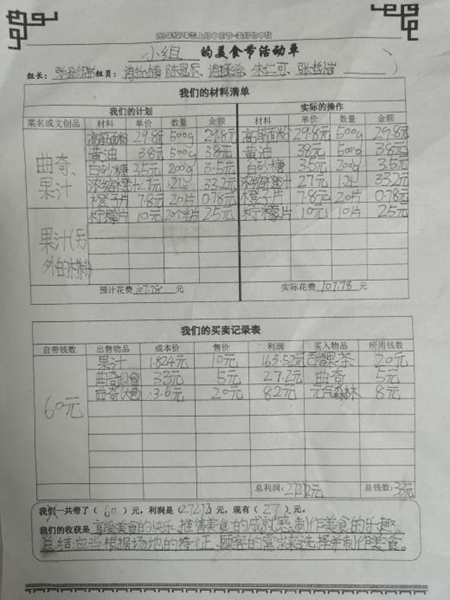 小组 的美食节活动单
组长： 组员：
我们的材料清单
我们的计划 实际的操作
菜名或文创品 材料 单价 数量 金额 材料 单价 数量 金额
曲奇、果汁 高筋面粉 29.8元 500g 29.8元 高筋面粉 29.8元 500g 29.8元
黄油 38元 500g 38元 黄油 38元 500g 38元
白砂糖 3.5元 200g 3.5元 白砂糖 3.5元 200g 3.5元
浓缩橙汁 2.7元 12 33.2元 浓缩橙汁 2.7元 12 33.2元
橙子片 7.8元 20片 0.78元 橙子片 7.8元 10片 0.78元
柠檬片 10元 2.5元 柠檬片 10元 10片 2.5元
果汁(另外白的材料)
预计花费 107.78 元 实际花费 107.78 元
我们的买卖记录表
自带钱数 出售物品 成本价 售价 利润 买入物品 所用钱数
60元 果汁 1.824元 10元 163.52元 果茶 20元
曲奇 3.3元 5元 27.2元 曲奇 5元
曲奇 13.6元 20元 82元 元气森林 8元
总利润： 总钱数：33元
我们一共带了（ 60 ）元，利润是（272.72）元，现有（ 27 ）元。
我们的收获是 享受美食的快乐、推销美食的成就感、制作美食的乐趣
总结：应当根据场地的特征、顾客的需求来选择并制作美食。